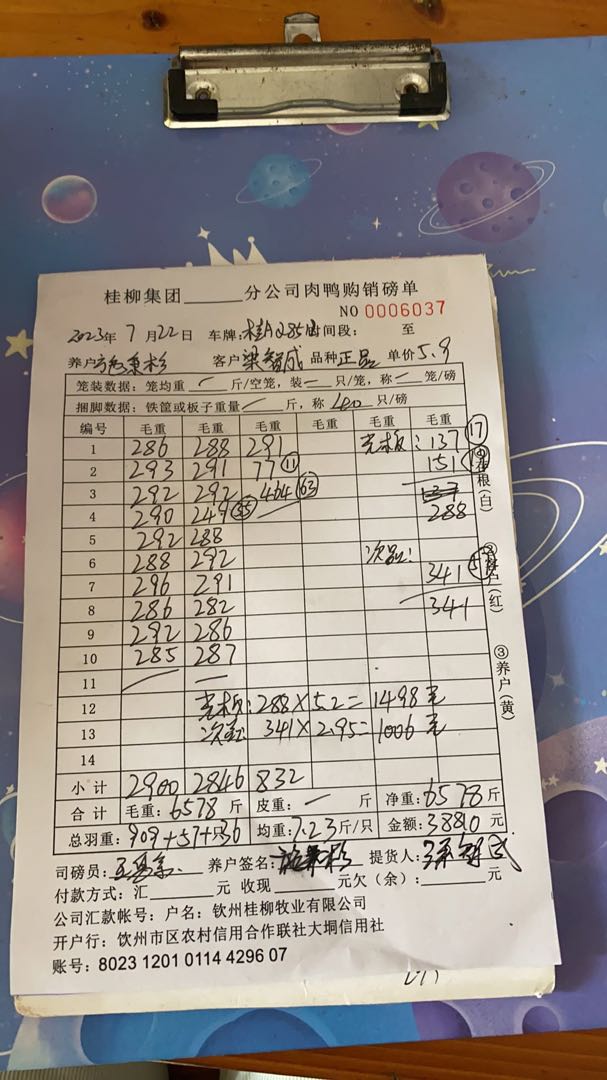 桂柳集团______分公司肉鸭购销磅单
NO 0006037
2023年 7月22日 车牌: 时间段: 至
养户 客户 梁智成 品种 正品 单价5.9
笼装数据：笼均重 — 斤/空笼，装 — 只/笼，称 — 笼/磅
捆脚数据：铁筐或板子重量 — 斤，称 只/磅
编号 毛重 毛重 毛重 毛重 毛重 毛重
1 286 288 291 壳板: 137 17
2 293 291 77 11 151
3 292 292 464 63
4 290 249 35 288
5 292 288
6 288 292 次品:
7 296 291 341
8 286 282 341
9 292 286
10 285 287
11 — —
12 壳板:288×5.2=1498元
13 次品 341×2.95=1006元
14
小计 2900 2846 832
合计 毛重:6578斤 皮重: — 斤 净重:6578斤
总羽重:909+57+36只 均重:7.23斤/只 金额:38810元
司磅员: 养户签名: 提货人:
付款方式：汇______元 收现______元欠（余）:______元
公司汇款帐号：户名：钦州桂柳牧业有限公司
开户行：钦州市区农村信用合作联社大垌信用社
账号：8023 1201 0114 4296 07
根(白)
(红)
③养户(黄)